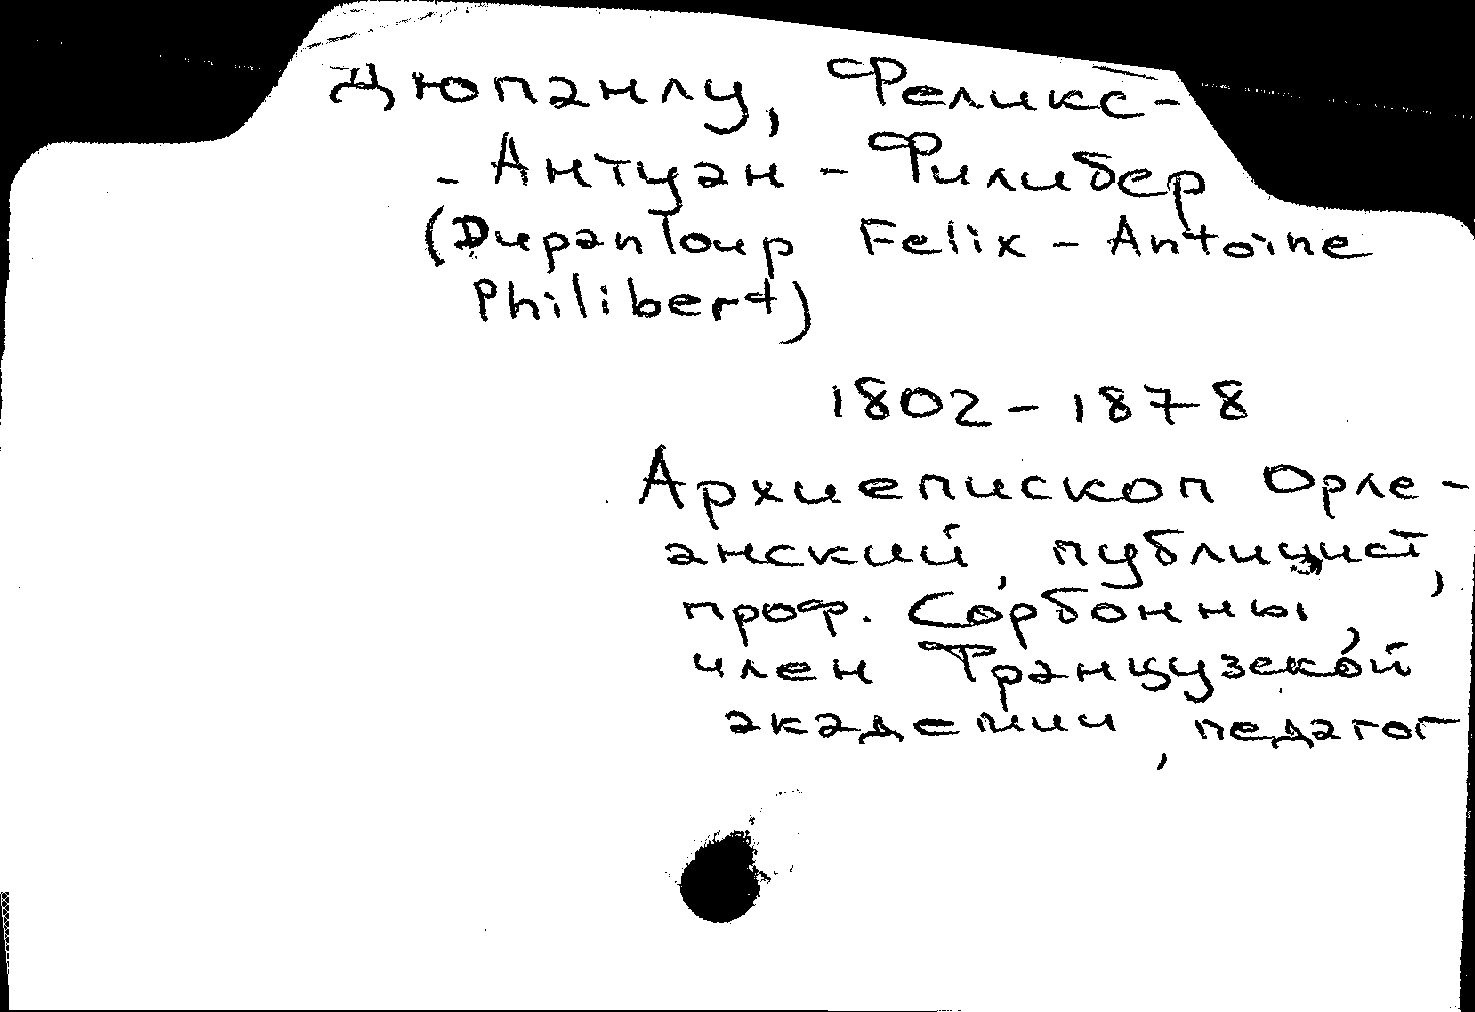 Дюпанлу, Феликс-
- Антуан - Филибер
(Dupanloup Felix - Antoine
Philibert)
1802 - 1878
Архиепископ Орле-
анский, публицист,
проф. Сорбонны,
член Французской
академии, педагог